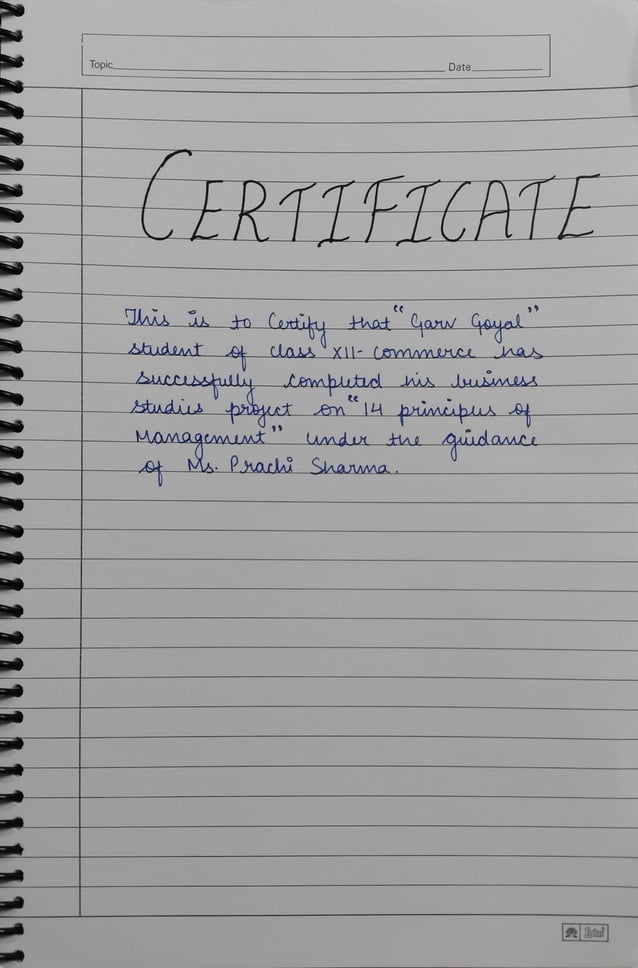 Topic Date
CERTIFICATE
This is to Certify that "Garv Goyal"
student of class XII- Commerce has
successfully completed his business
studies project on "14 principles of
Management" under the guidance
of Ms. Prachi Sharma.